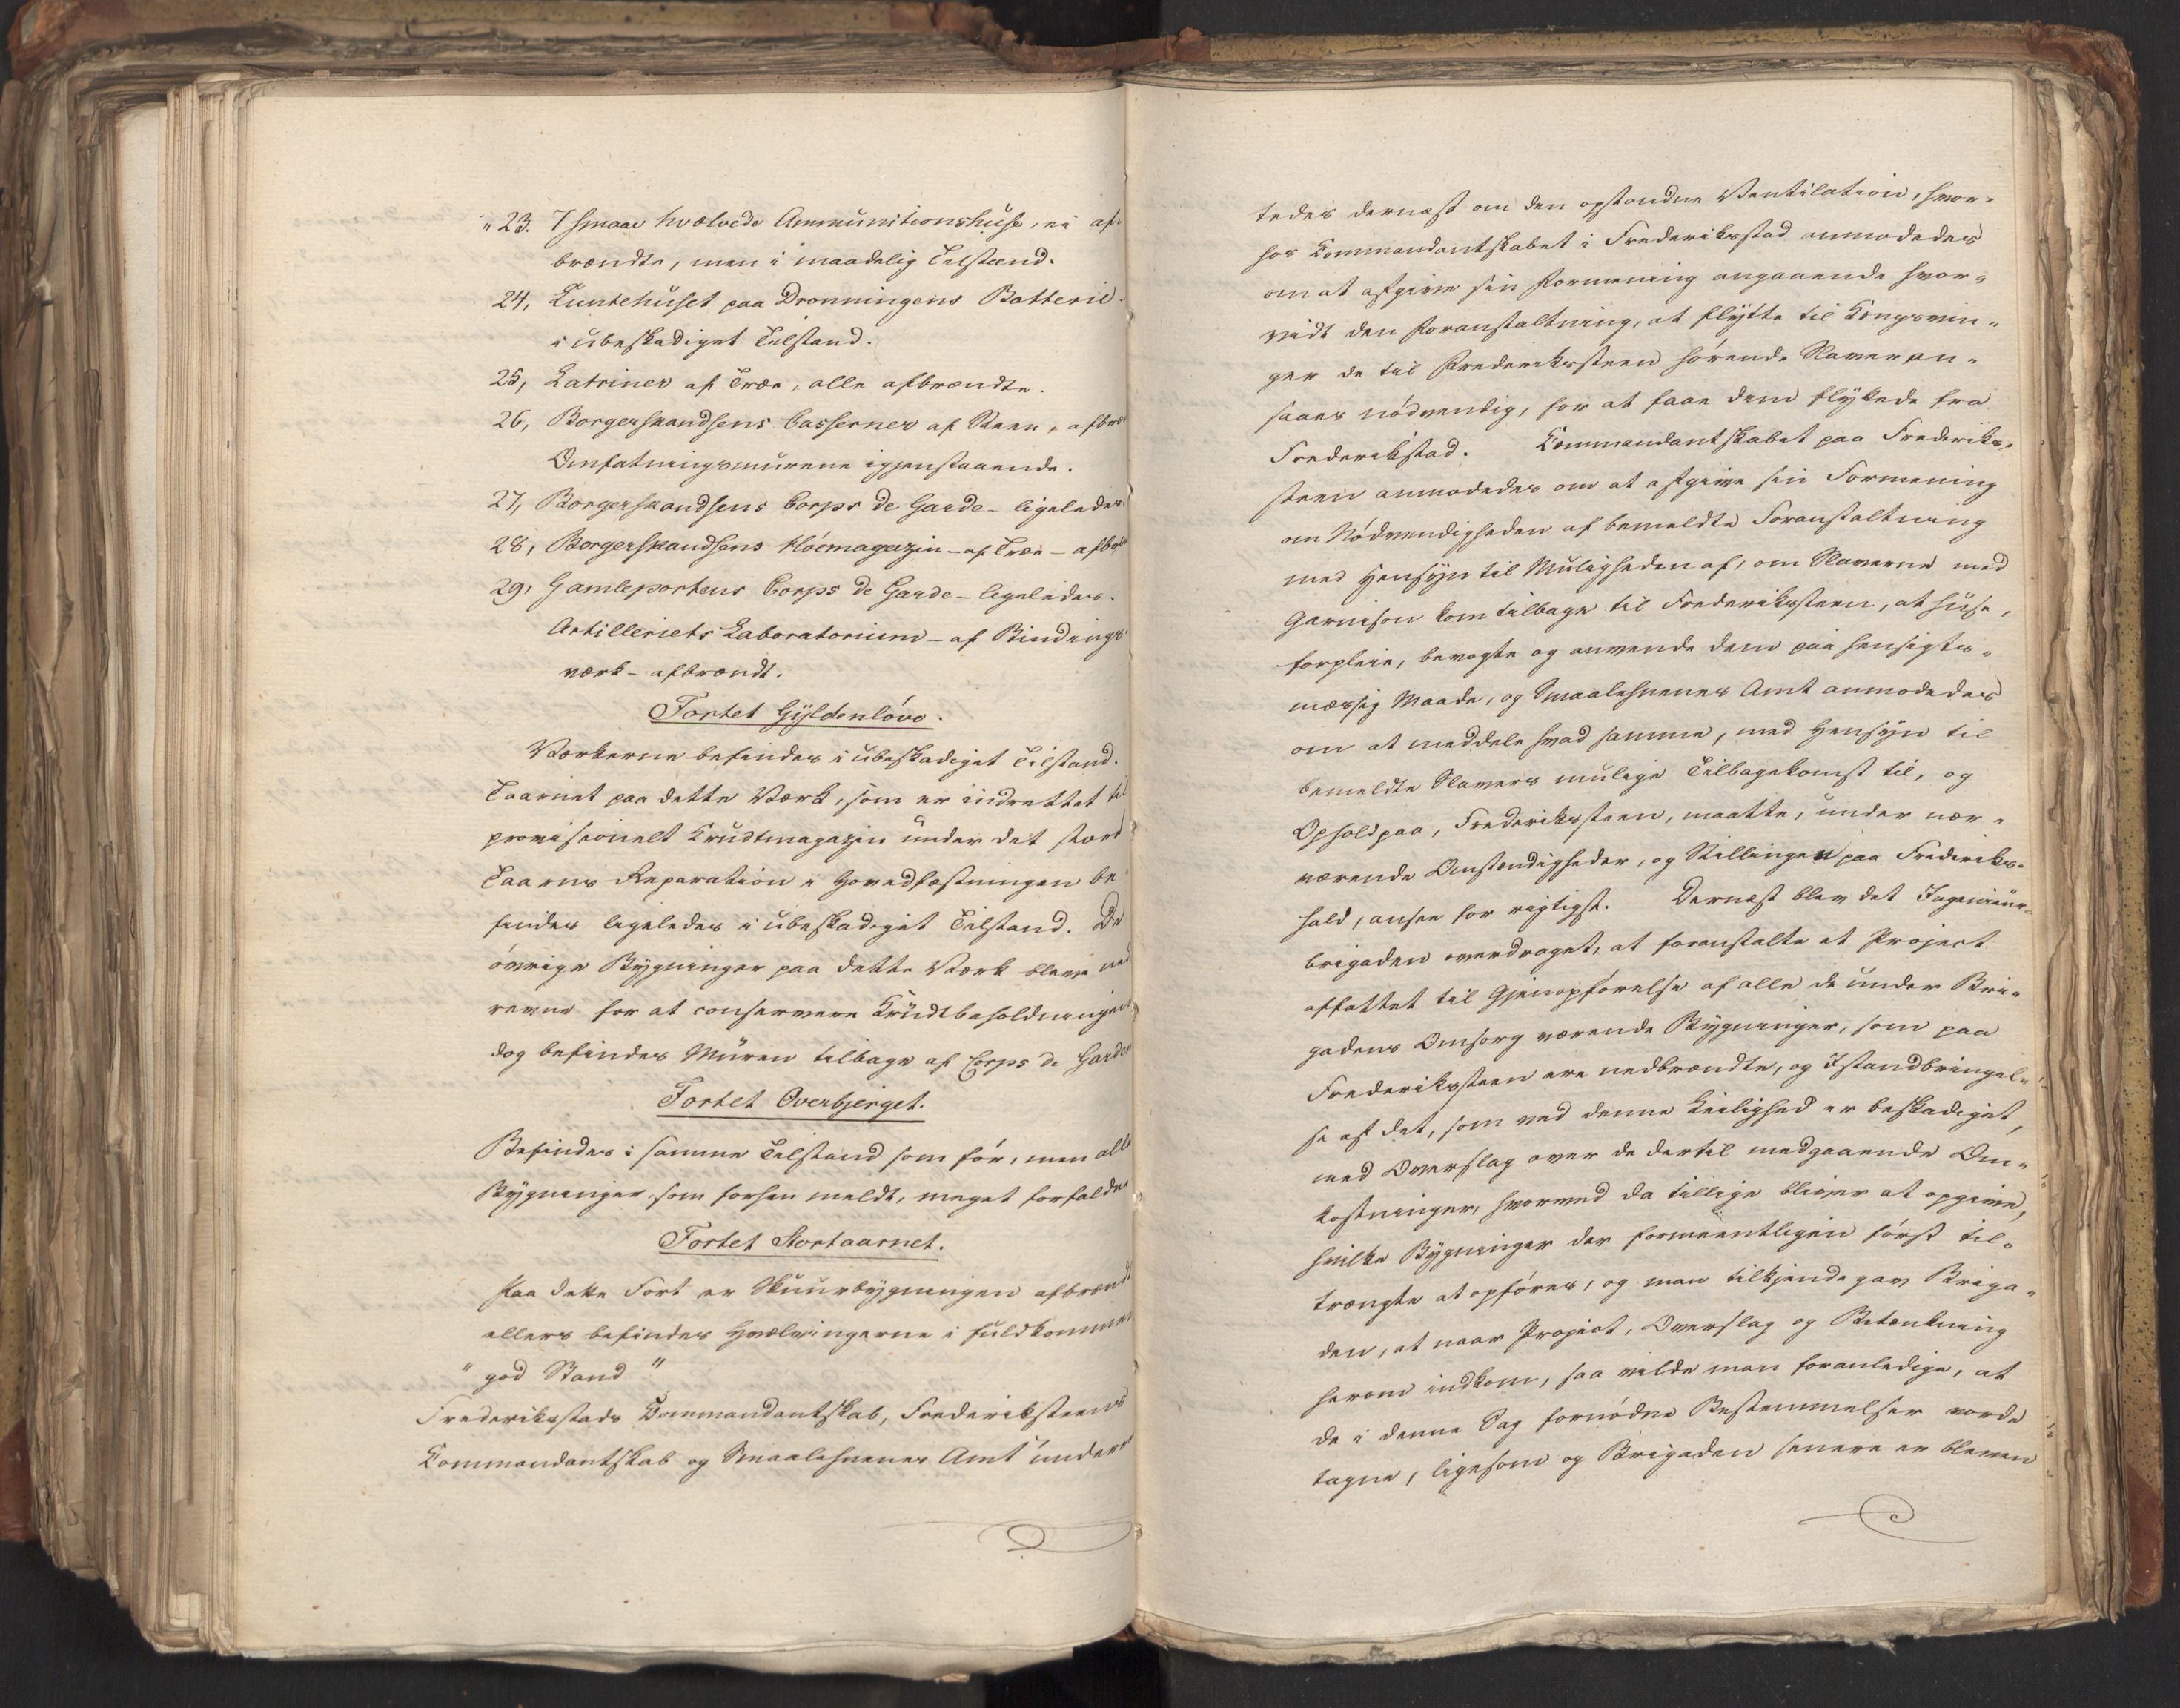 "23. 7 smaae hvælvede Ammunitionshuse, ei af-
brændte, men i maadelig Tilstand.
24, Luntehuset paa Dronningens Batterie
i ubeskadiget Tilstand.
25, Latriner af Træe, alle afbrændte.
26, Borgerskandsens Casserner af Steen, afbræ
Omfatningsmurene igjenstaaende.
27, Borgerskandsens Corps de Garde - ligeledes.
28, Borgerskandsens Höemagazin - af Træe - afbr
29, Gamleportens Corps de Garde - ligeledes.
Artilleriets Laboratorium - af Bindings
værk - afbrændt.
Fortet Gyldenlöve.
Værkerne befindes i ubeskadiget Tilstand.
Taarnet paa dette Værk, som er indrettet til
provisionelt Krudtmagazin under det store
Taarns Reparation i Hovedfæstningen be-
findes ligeledes i ubeskadiget Tilstand. De
övrige Bygninger paa dette Værk bleve ned
revne for at conservere Krudtbeholdningen
dog befindes Muren tilbage af Corps de Garde
Fortet Overbjerget.
Befindes i samme Tilstand som för, men alle
Bygninger som forhen meldt, meget forfaldne
Fortet Stortaarnet.
Paa dette Fort er Skuurbygningen afbrændt
ellers befindes Hvælvingerne i fuldkommen
"god Stand"
Frederiksstads Commandantskab, Frederiksteens
Commandantskab og Smaalehnenes Amt underret
tedes dernæst om den opstandne Ventilation, hvor-
hos Commandantskabet i Frederiksstad anmodedes
om at afgive sin Formening angaaende hvor-
vidt den Foranstaltning, at flytte til Kongsvin-
ger de til Frederikssteen hörende Slaver an-
saaes nödvendig, for at faae dem flyttede fra
Frederikstad. Commandantskabet paa Frederiks-
steen anmodedes om at afgive sin Formening
om Nödvendigheden af bemeldte Foranstaltning
med Hensyn til Muligheden af, om Slaverne med
Garnison kom tilbage til Frederikssteen, at huse,
forpleie, bevogte og anvende dem paa hensigts-
mæssig Maade, og Smaalehnenes Amt anmodedes
om at meddele hvad samme, med Hensyn til
bemeldte Slavers mulige Tilbagekomst til, og
Ophold paa, Frederikssteen, maatte, under nær-
værende Omstændigheder, og Stillingen paa Frederiks-
hald, ansee for rigtigst. Dernæst blev det Ingenieur-
brigaden overdraget, at foranstalte et Project
affattet til Gjenopförelse af alle de under Bri-
gadens Omsorg værende Bygninger, som paa
Frederikssteen ere nedbrændte, og Istandbringel-
se af det, som ved denne Leilighed er beskadiget,
med Overslag over de dertil medgaaende Om-
kostninger, hvorved da tillige bliver at opgive,
hvilke Bygninger der formeentligen först til-
trængte at opföres, og man tilkjendegav Briga-
den, at naar Project, Overslag og Betænkning
herom indkom, saa vilde man foranledige, at
de i denne Sag fornödne Bestemmelser vorde
tagne, ligesom og Brigaden senere er bleven